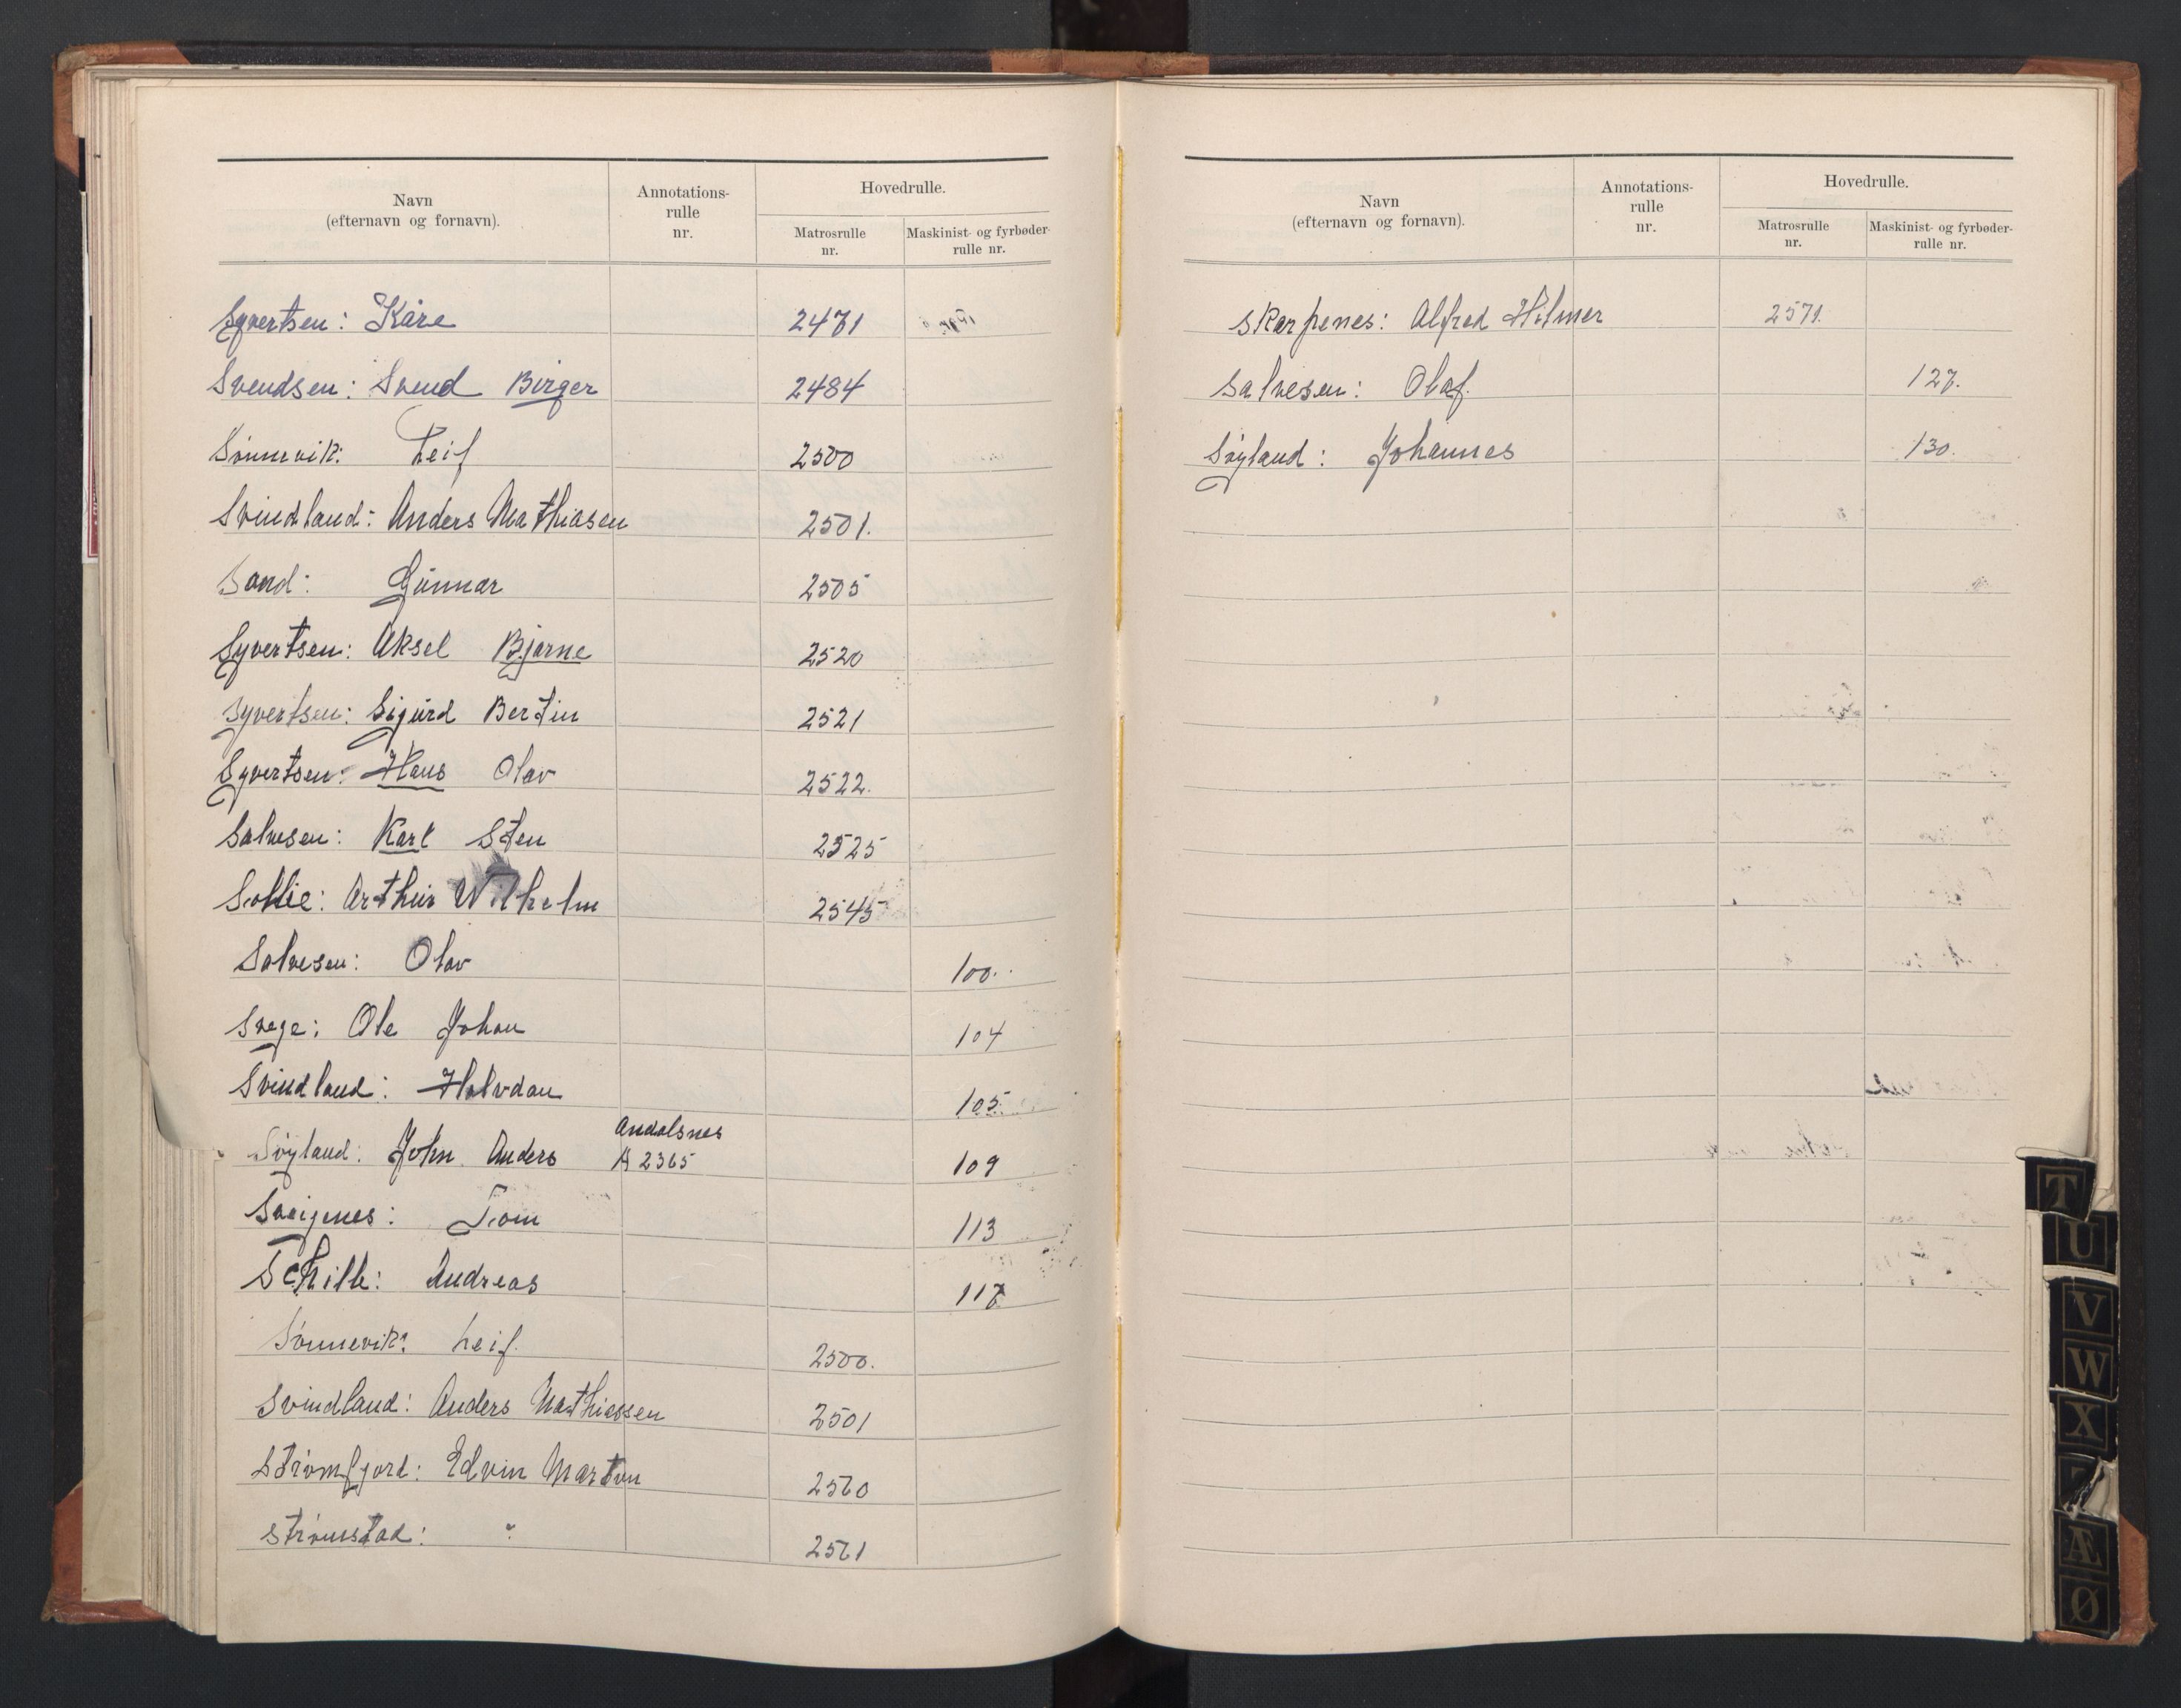 Navn
(efternavn og fornavn).
Annotations-
rulle
nr.
Hovedrulle.
Matrosrulle
nr.
Maskinist- og fyrbøder-
rulle nr.
Syvertsen: Kåre 2471
Svendsen: Svend Birger 2484
Sønnevik: Leif 2500
Svindland: Anders Mathiasen 2501.
Sand: Gunnar 2505
Syvertsen: Aksel Bjarne 2520
Syvertsen: Sigurd Bertin 2521
Syvertsen: Hans Olav 2522.
Salvesen: Karl Sten 2525
Sollie: Arthur Wilhelm 2545
Salvesen: Olav 100.
Svege: Ole Johan 104
Svindland: Halvdan 105
Søyland: John Anders Andalsnes 109
A 2365
Sveigenes: Tom 113
Schille: Andreas 117
Sønnevik: Leif. 2500.
Svindland: Anders Mathiassen 2501
Strømfjord: Edvin Marton 2560
Strømstad: " 2561
Navn
(efternavn og fornavn).
Annotations-
rulle
nr.
Hovedrulle.
Matrosrulle
nr.
Maskinist- og fyrbøder-
rulle nr.
Skarpenes: Alfred Hilmer 2571.
Salvesen: Olaf. 127.
Søyland: Johannes 130.
T
U
V
W
X
Æ
Ø